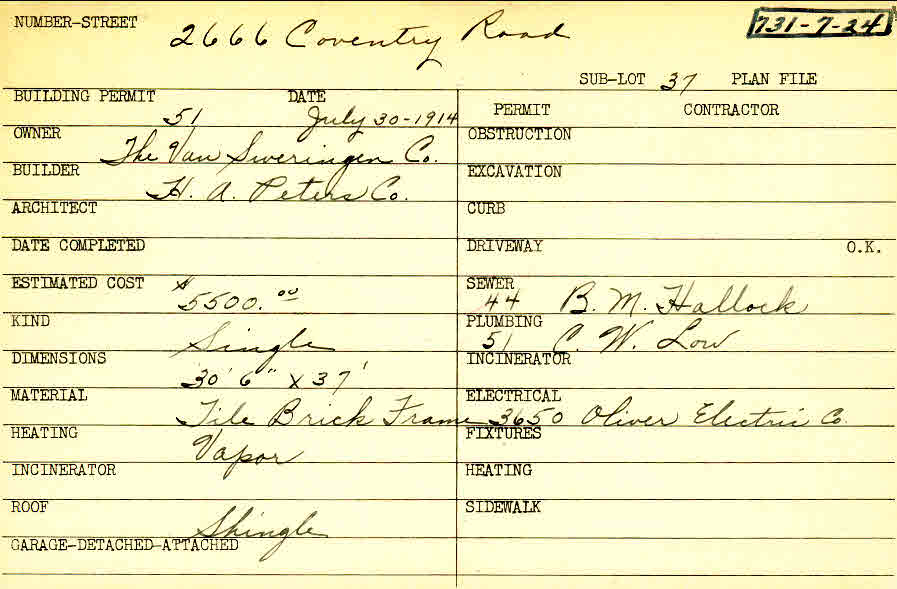 NUMBER-STREET 2666 Coventry Road 731-7-24
SUB-LOT 37 PLAN FILE
BUILDING PERMIT 51 DATE July 30-1914
OWNER The Van Sweringen Co.
BUILDER H. A. Peters Co.
ARCHITECT
DATE COMPLETED
ESTIMATED COST $5500.00
KIND Single
DIMENSIONS 30' 6" x 37'
MATERIAL Tile Brick Frame
HEATING Vapor
INCINERATOR
ROOF Shingle
GARAGE-DETACHED-ATTACHED
PERMIT CONTRACTOR
OBSTRUCTION
EXCAVATION
CURB
DRIVEWAY O.K.
SEWER 44 B. M. Hallock
PLUMBING 51 C. W. Low
INCINERATOR
ELECTRICAL 3650 Oliver Electric Co.
FIXTURES
HEATING
SIDEWALK